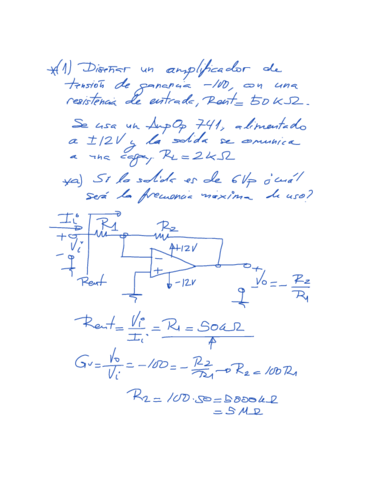 *(1) Diseñar un amplificador de
tensión de ganancia -100, con una
resistencia de entrada, Rent = 50 KΩ.
Se usa un AmpOp 741, alimentado
a ±12V y la salida se comunica
a una carga, RL = 2KΩ
*a) Si la salida es de 6Vp ¿cuál
será la frecuencia máxima de uso?
Ii R1 R2
+ Vi - Rent
+12V
- +
-12V
+ Vo = - R2/R1
Rent = Vi/Ii = R1 = 50KΩ
Gv = Vo/Vi = -100 = - R2/R1 → R2 = 100R1
R2 = 100·50 = 5000KΩ
= 5 MΩ